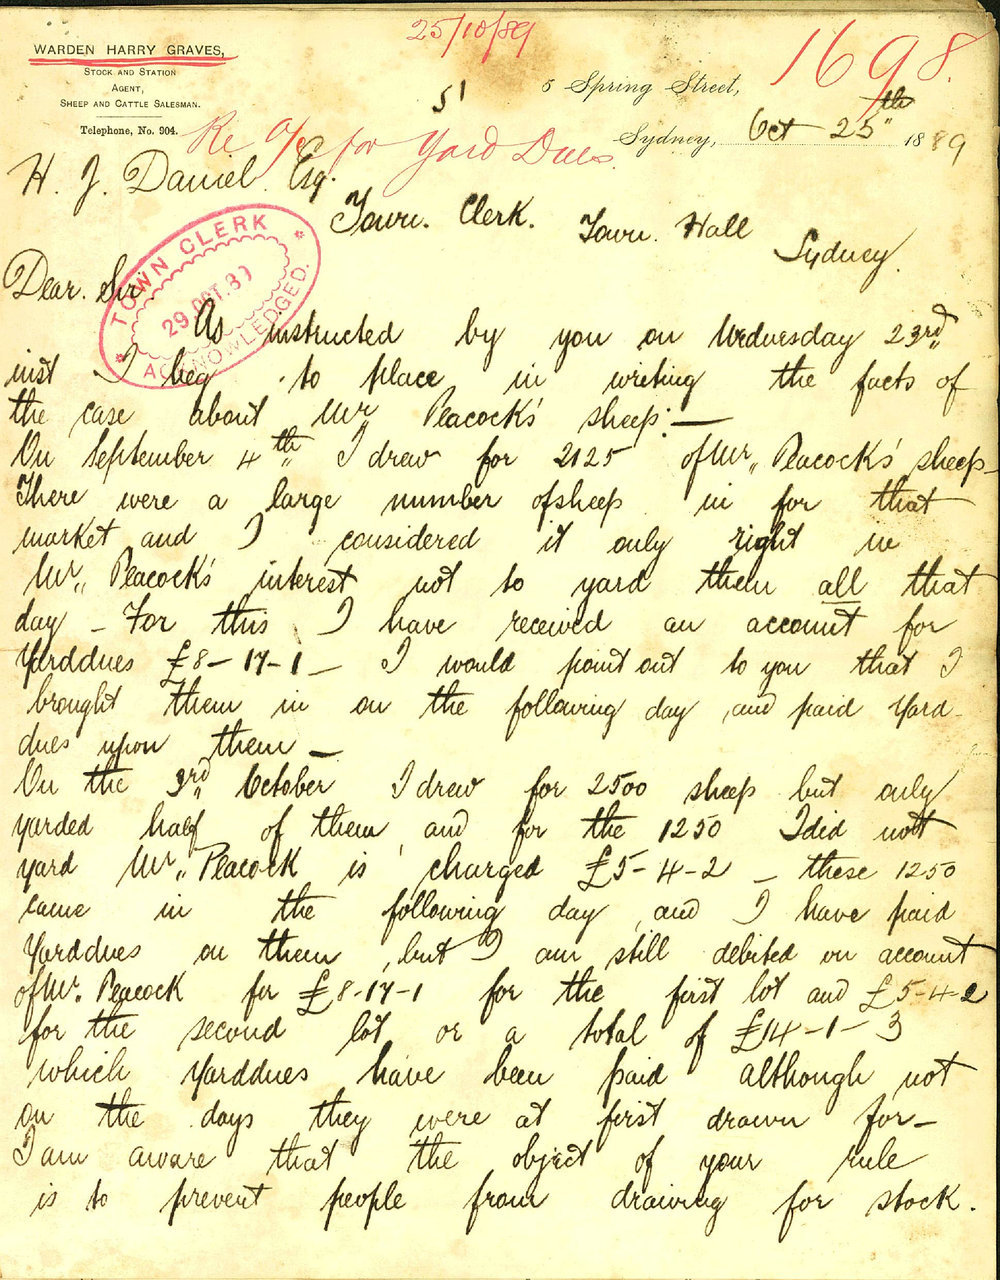 25/10/89
WARDEN HARRY GRAVES,
STOCK AND STATION
AGENT,
SHEEP AND CATTLE SALESMAN.
Telephone, No. 904.
1698.
51
5 Spring Street,
Sydney, Oct 25th 1889
Re a/c for Yard Dues
H. J. Daniel Esq.
Town. Clerk. Town. Hall
Sydney.
TOWN CLERK
29 OCT. 89
ACKNOWLEDGED.
Dear. Sir.
As instructed by you on Wednesday 23rd
inst I beg to place in writing the facts of
the case about Mr. Peacock's sheep:—
On September 4th I drew for 2125 of Mr. Peacock's sheep—
There were a large number of sheep in for that
market and I considered it only right in
Mr. Peacock's interest not to yard them all that
day — For this I have received an account for
Yarddues £8-17-1 — I would point out to you that I
brought them in on the following day, and paid Yard-
dues upon them —
On the 3rd October I drew for 2500 sheep but only
yarded half of them, and for the 1250 I did not
yard Mr. Peacock is charged £5-4-2 — these 1250
came in the following day, and I have paid
Yarddues on them, but I am still debited on account
of Mr. Peacock for £8-17-1 for the first lot and £5-4-2
for the second lot or a total of £14-1-3
which Yarddues have been paid although not
on the days they were at first drawn for—
I am aware that the object of your rule
is to prevent people from drawing for stock.